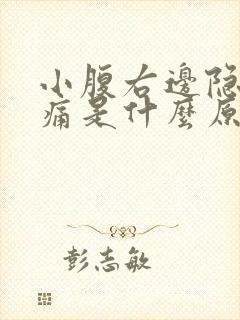 小腹右邊隐
痛是什麼原
彭志敏